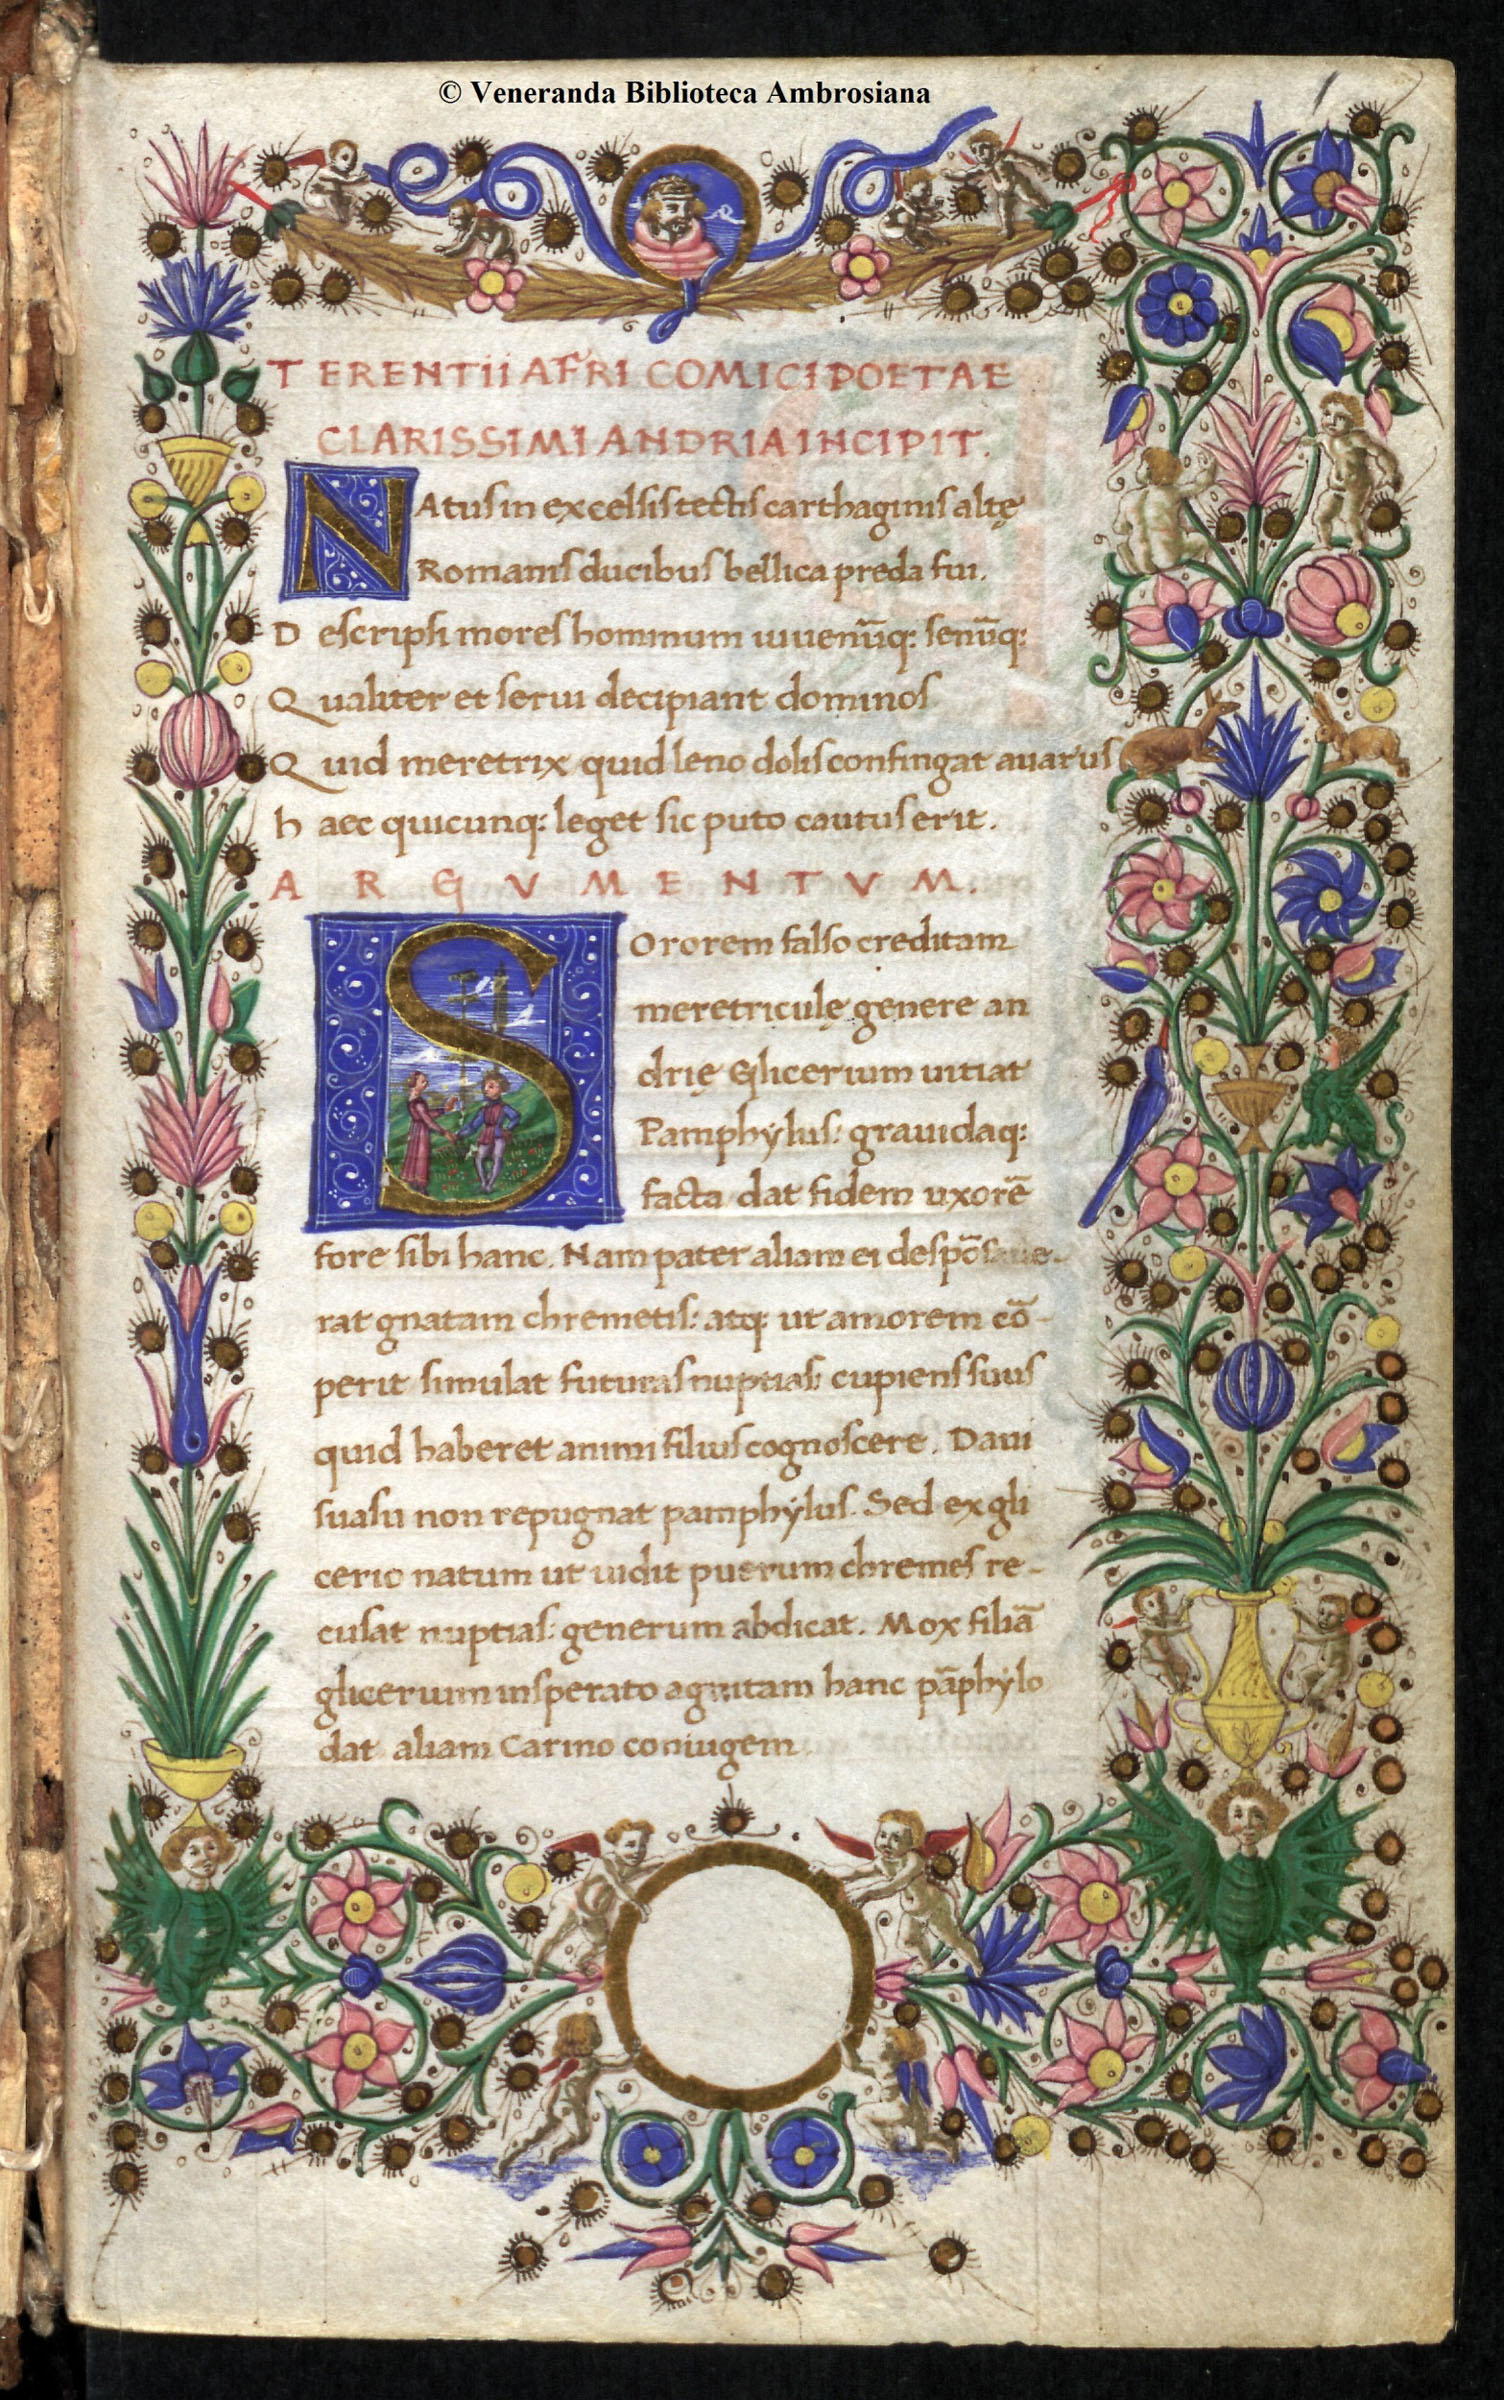 © Veneranda Biblioteca Ambrosiana
TERENTII AFRI COMICI POETAE
CLARISSIMI ANDRIA INCIPIT.
NAtus in excelsis tectis carthaginis altę
Romanis ducibus bellica preda fui.
Descripsi mores hominum iuuenūq: senūq:
Qualiter et serui decipiant dominos
Quid meretrix quid leno dolis confingat auarus
haec quicunq: leget sic puto cautus erit.
ARGVMENTVM.
SOrorem falso creditam
meretriculę genere an
drię Glicerium uitiat
Pamphylus: grauidaq:
facta dat fidem uxorē
fore sibi hanc. Nam pater aliam ei despōsaue-
rat gnatam chremetis: atq: ut amorem cō-
perit simulat futuras nuptias: cupiens suus
quid haberet animi filius cognoscere. Daui
suasu non repugnat pamphylus. Sed ex gli
cerio natum ut uidit puerum chremes re-
cusat nuptias: generum abdicat. Mox filiā
glicerium insperato agnitam hanc pāphylo
dat aliam Carino coniugem.